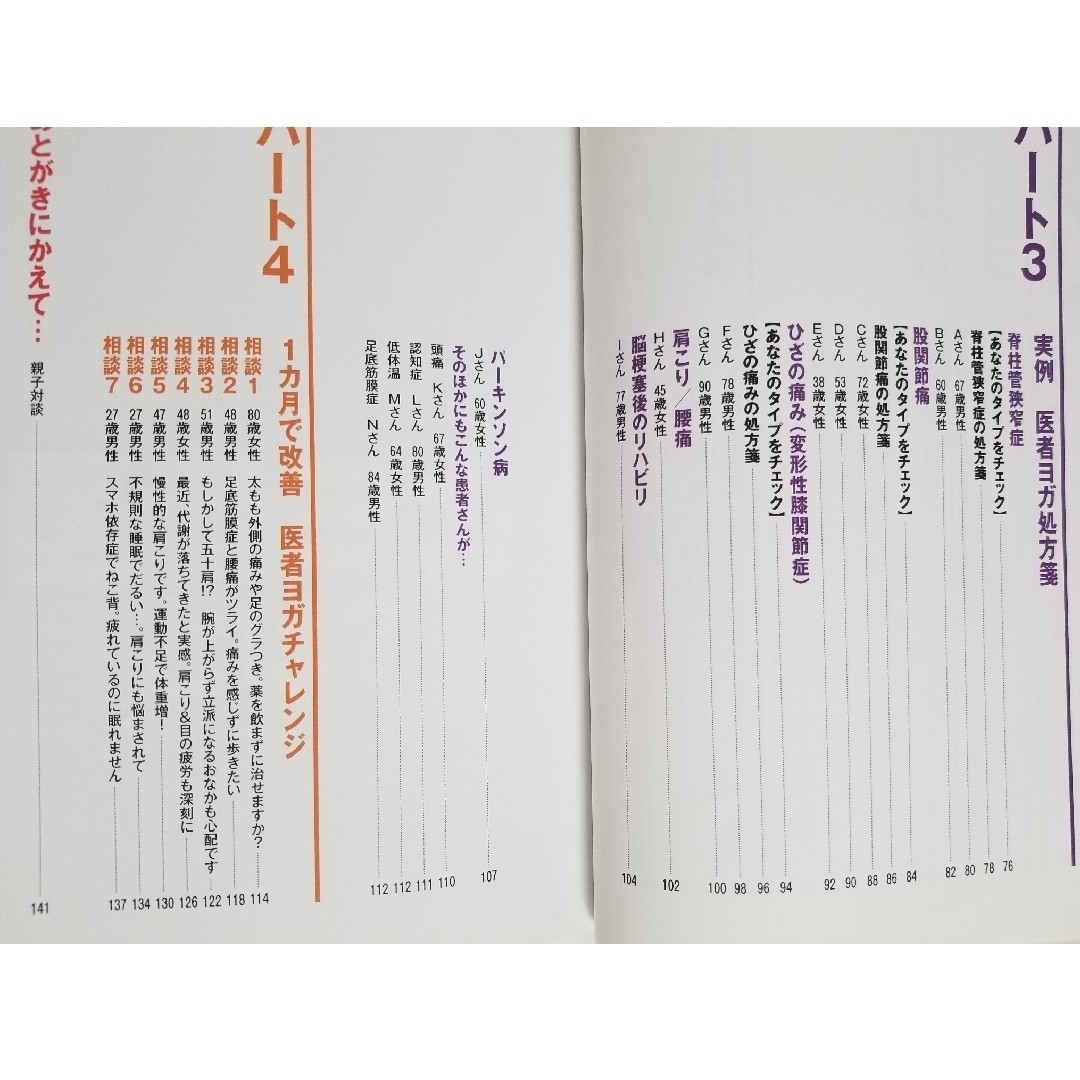 パート3
実例 医者ヨガ処方箋
脊柱管狭窄症
【あなたのタイプをチェック】 76
脊柱管狭窄症の処方箋 78
Aさん 67歳男性 80
Bさん 60歳男性 82
股関節痛
【あなたのタイプをチェック】 84
股関節痛の処方箋 86
Cさん 72歳女性 88
Dさん 53歳女性 90
Eさん 38歳女性 92
ひざの痛み(変形性膝関節症)
【あなたのタイプをチェック】 94
ひざの痛みの処方箋 96
Fさん 78歳男性 98
Gさん 90歳男性 100
肩こり/腰痛
Hさん 45歳女性 102
脳梗塞後のリハビリ
Iさん 77歳男性 104
パーキンソン病
Jさん 60歳女性 107
そのほかにもこんな患者さんが…
頭痛 Kさん 67歳女性 110
認知症 Lさん 80歳男性 111
低体温 Mさん 64歳女性 112
足底筋膜症 Nさん 84歳男性 112
パート4
1カ月で改善 医者ヨガチャレンジ
相談1 80歳女性 太もも外側の痛みや足のグラつき。薬を飲まずに治せますか? 114
相談2 48歳男性 足底筋膜症と腰痛がツライ。痛みを感じずに歩きたい 118
相談3 51歳男性 もしかして五十肩!? 腕が上がらず立派になるおなかも心配です 122
相談4 48歳女性 最近、代謝が落ちてきたと実感。肩こり&目の疲労も深刻に 126
相談5 47歳男性 慢性的な肩こりです。運動不足で体重増! 130
相談6 27歳男性 不規則な睡眠でだるい…。肩こりにも悩まされて 134
相談7 27歳男性 スマホ依存症でねこ背。疲れているのに眠れません 137
あとがきにかえて… 親子対談 141